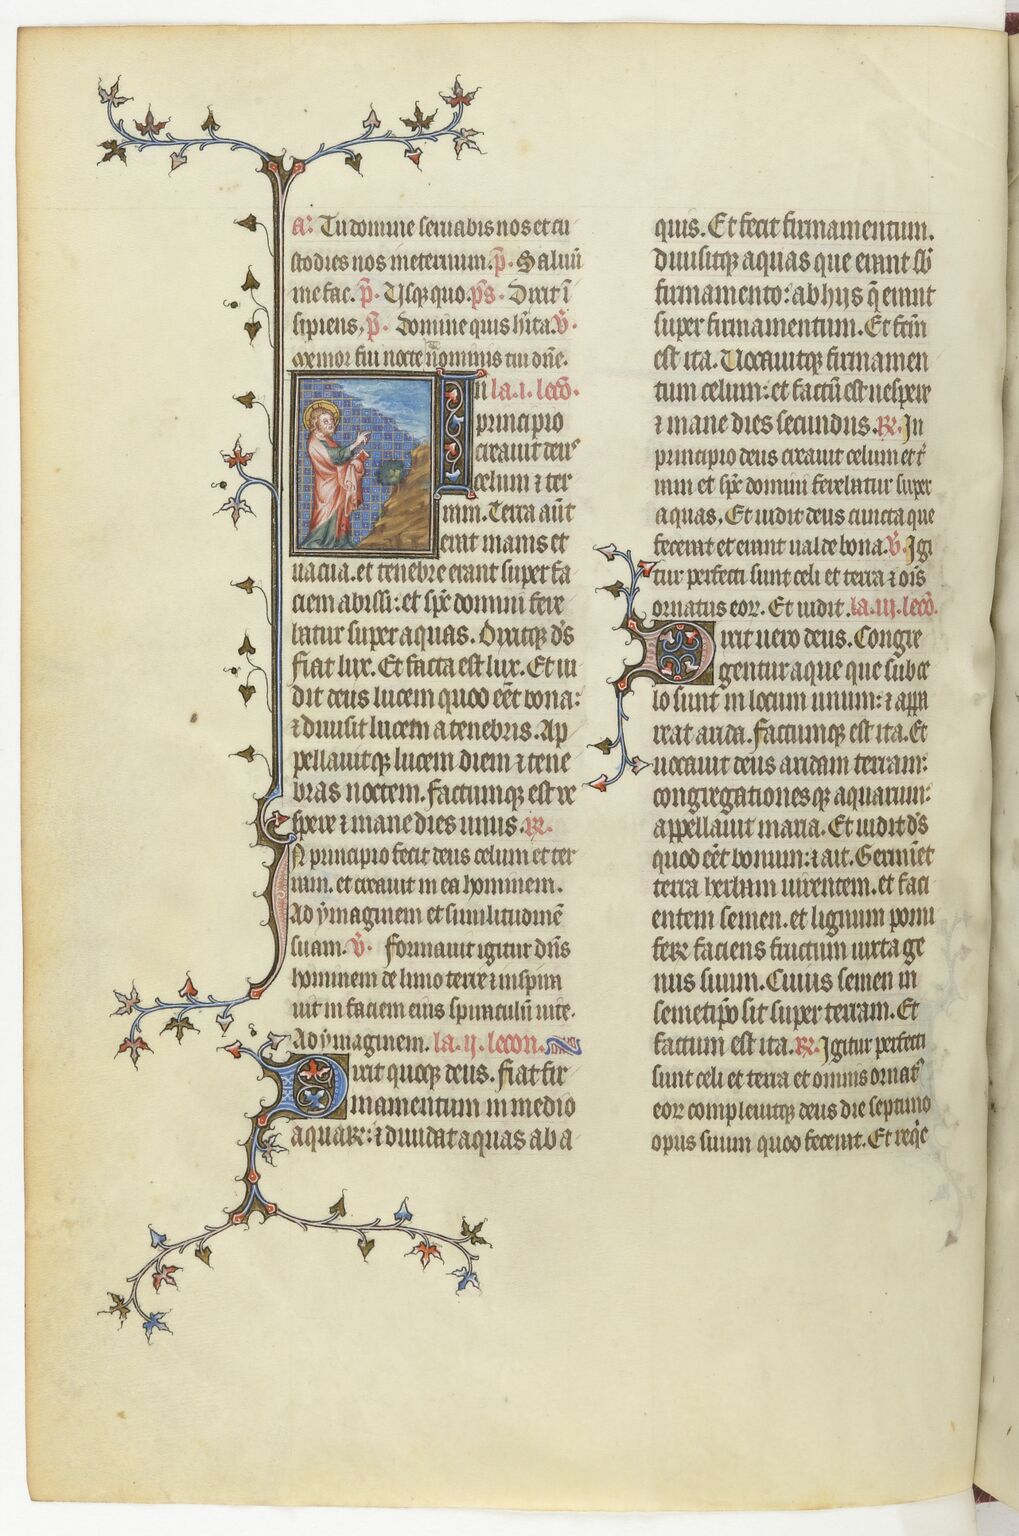 A. Tu domine seruabis nos et cu
stodies nos meternum. p̄. Saluū
me fac. p̄. Usq̄quo. ps. Dixit ī
sipiens, p̄. Domine quis hīta. v̄.
Memor fui nocte nominis tui dn̄e.
In la. i. lecō.
principio
creauit deus
celum ⁊ ter
ram. Terra aūt
erat inanis et
uacua. et tenebre erant super fa
ciem abissi: et sp̄c domini fere
batur super aquas. Dixitq̄ d̄s
fiat lux. Et facta est lux. Et ui
dit deus lucem quod eēt bona:
⁊ diuisit lucem a tenebris. Ap
pellauitq̄ lucem diem ⁊ tene
bras noctem. factumq̄ est ve
spere ⁊ mane dies unus. R̄.
IN principio fecit deus celum et ter
ram. et creauit in ea hominem.
Ad ymaginem et similitudinē
suam. v̄. formauit igitur dn̄s
hominem de limo terre ⁊ inspira
uit in faciem eius spiraculū uite.
Ad ymaginem. la. ii. lecon.
Dixit quoq̄ deus. fiat fir
mamentum in medio
aquaꝝ: ⁊ diuidat aquas ab a
quis. Et fecit firmamentum.
Diuisitq̄ aquas que erant sb̄
firmamento: ab hijs q̄ erant
super firmamentum. Et fcm̄
est ita. Uocauitq̄ firmamen
tum celum: et factū est uespere
⁊ mane dies secundus. R̄. In
principio deus creauit celum et t̄
ram et sp̄c domini ferebatur super
aquas. Et uidit deus cuncta que
fecerat et erant ualde bona. v̄. Igi
tur perfecti sunt celi et terra ⁊ ōis
ornatus eoꝝ. Et uidit. la. iii. lecō.
Dixit uero deus. Congre
gentur aque que sub ce
lo sunt in locum unum: ⁊ appa
reat arida. factumq̄ est ita. Et
uocauit deus aridam terram:
congregationesq̄ aquarum:
appellauit maria. Et uidit d̄s
quod eēt bonum: ⁊ ait. Germīet
terra herbam uirentem. et faci
entem semen. et lignum pomi
feꝝ faciens fructum iuxta ge
nus suum. Cuius semen in
semetip̄o sit super terram. Et
factum est ita. R̄. Igitur perfecti
sunt celi et terra et omnis ornat⁹
eoꝝ compleuitq̄ deus die septimo
opus suum quod fecerat. Et req̄e